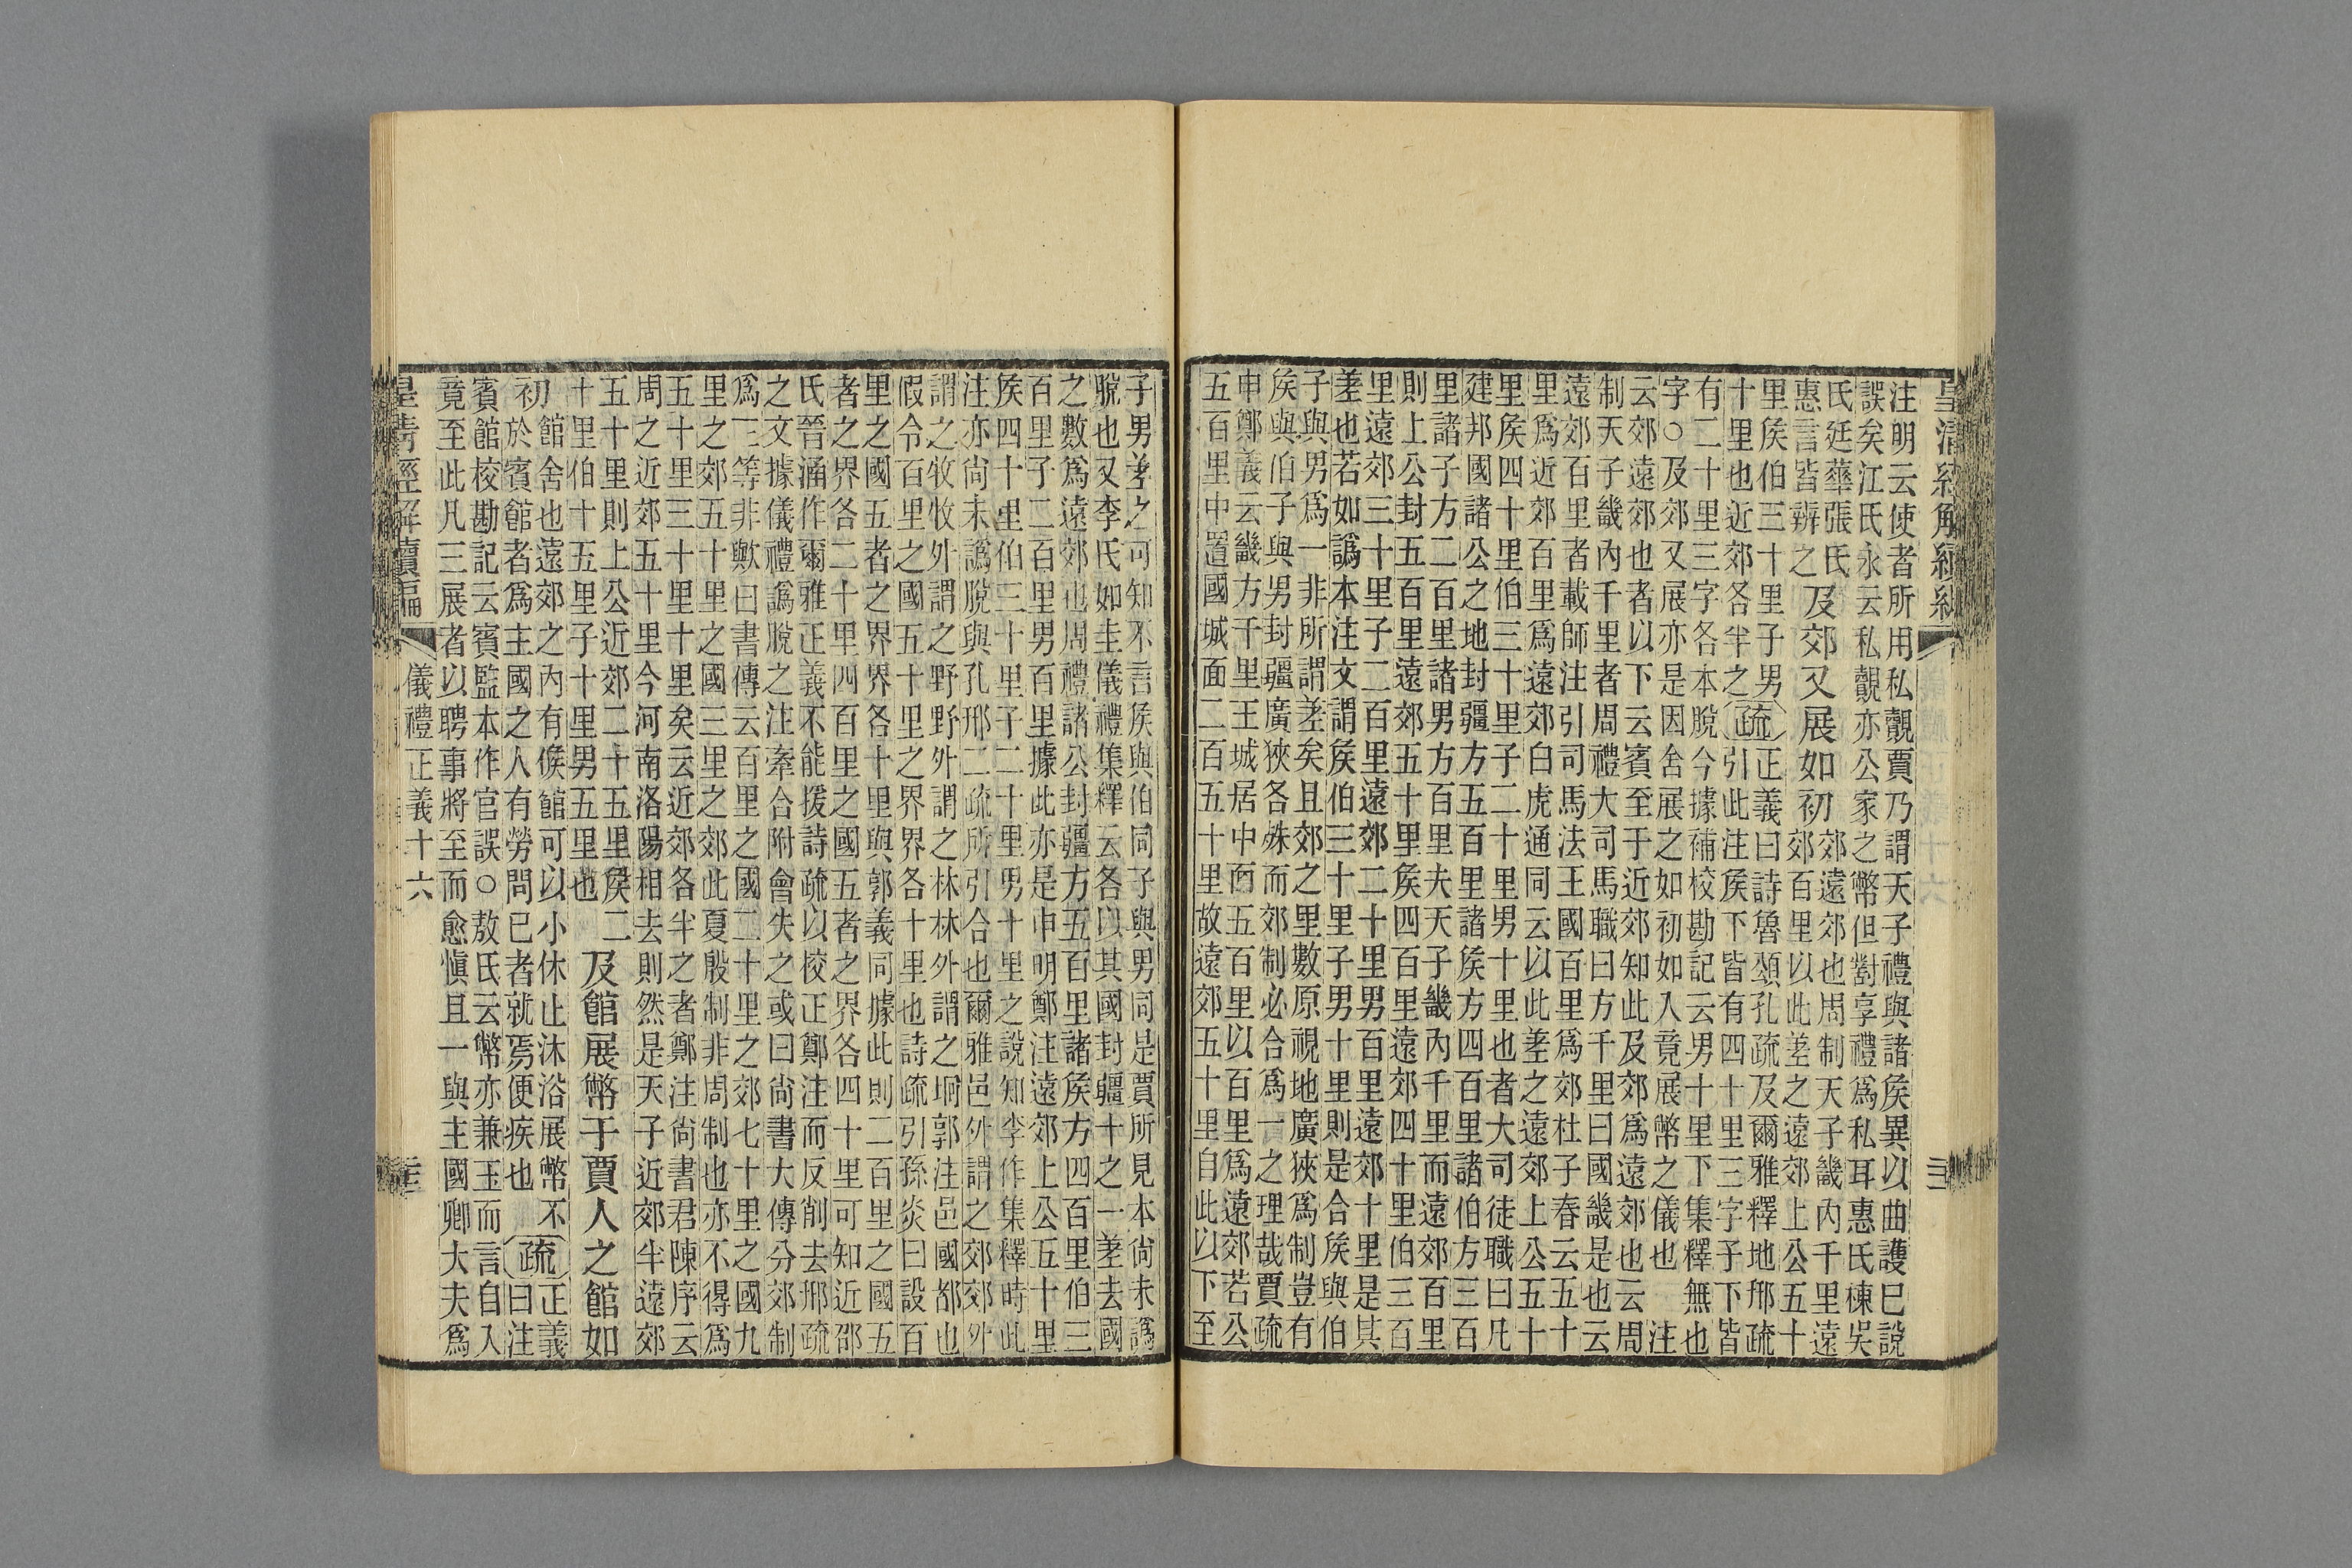 皇清經解續編
注明云使者所用私覿賈乃謂天子禮與諸侯異以曲護巳說
誤矣江氏永云私覿亦公家之幣但對享禮爲私耳惠氏棟吳
氏廷華張氏
惠言皆辨之
及郊又展如初
郊遠郊也周制天子畿內千里遠
郊百里以此差之遠郊上公五十
里侯伯三十里子男
十里也近郊各半之
疏
正義曰詩魯頌孔疏及爾雅釋地邢疏
引此注侯下皆有四十里三字子下皆
有二十里三字各本脫今據補校勘記云男十里下集釋無也
字○及郊又展亦是因舍展之如初如入竟展幣之儀也　注
云郊遠郊也者以下云賓至于近郊知此及郊爲遠郊也云周
制天子畿內千里者周禮大司馬職曰方千里曰國畿是也云
遠郊百里者載師注引司馬法王國百里爲郊杜子春云五十
里爲近郊百里爲遠郊白虎通同云以此差之遠郊上公五十
里侯四十里伯三十里子二十里男十里也者大司徒職曰凡
建邦國諸公之地封疆方五百里諸侯方四百里諸伯方三百
里諸子方二百里諸男方百里夫天子畿內千里而遠郊百里
則上公封五百里遠郊五十里侯四百里遠郊四十里伯三百
里遠郊三十里子二百里遠郊二十里男百里遠郊十里是其
差也若如譌本注文謂侯伯三十里子男十里則是合侯與伯
子與男爲一非所謂差矣且郊之里數原視地廣狹爲制豈有
侯與伯子與男封疆廣狹各殊而郊制必合爲一之理哉賈疏
申鄭義云畿方千里王城居中面五百里以百里爲遠郊若公
五百里中置國城面二百五十里故遠郊五十里自此以下至
子男差之可知不言侯與伯同子與男同是賈所見本尙未譌
脫也又李氏如圭儀禮集釋云各以其國封疆十之一差去國
之數爲遠郊也周禮諸公封疆方五百里諸侯方四百里伯三
百里子二百里男百里據此亦是申明鄭注遠郊上公五十里
侯四十里伯三十里子二十里男十里之說知李作集釋時此
注亦尙未譌脫與孔邢二疏所引合也爾雅邑外謂之郊郊外
謂之牧牧外謂之野野外謂之林林外謂之坰郭注邑國都也
假令百里之國五十里之界界各十里也詩疏引孫炎曰設百
里之國五者之界界各十里與郭義同據此則二百里之國五
者之界各二十里四百里之國五者之界各四十里可知近邵
氏晉涵作爾雅正義不能援詩疏以校正鄭注而反削去邢疏
之文據儀禮譌脫之注牽合附會失之或曰尙書大傳分郊制
爲三等非歟曰書傳云百里之國二十里之郊七十里之國九
里之郊五十里之國三里之郊此夏殷制非周制也亦不得爲
五十里三十里十里矣云近郊各半之者鄭注尙書君陳序云
周之近郊五十里今河南洛陽相去則然是天子近郊半遠郊
五十里則上公近郊二十五里侯二
十里伯十五里子十里男五里也
及館展幣于賈人之館如
初
館舍也遠郊之內有侯館可以小休止沐浴展幣不
於賓館者爲主國之人有勞問已者就焉便疾也
疏
正義
曰注
賓館校勘記云賓監本作官誤○敖氏云幣亦兼玉而言自入
竟至此凡三展者以聘事將至而愈愼且一與主國卿大夫爲
皇清經解續編
儀禮正義十六